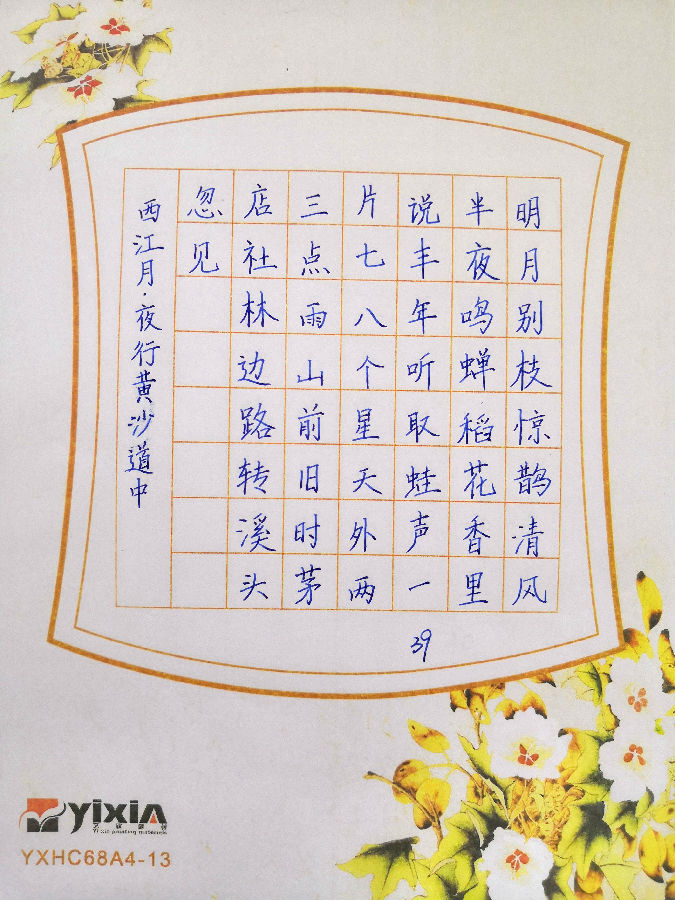 明月别枝惊鹊清风
半夜鸣蝉稻花香里
说丰年听取蛙声一
片七八个星天外两
三点雨山前旧时茅
店社林边路转溪头
忽见
西江月·夜行黄沙道中
39
Yixin
Yi xin painting materials
YXHC68A4-13